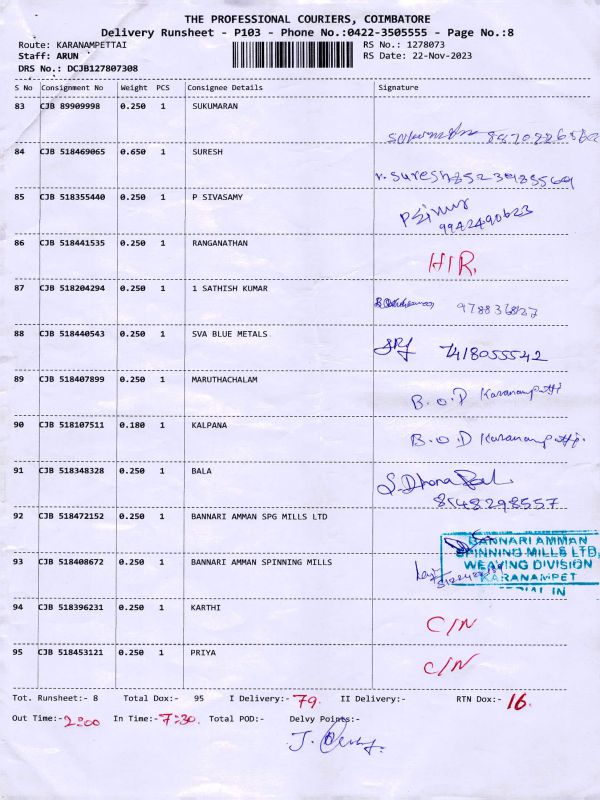 THE PROFESSIONAL COURIERS, COIMBATORE
Delivery Runsheet - P103 - Phone No.:0422-3505555 - Page No.:8
Route: KARANAMPETTAI RS No.: 1278073
Staff: ARUN RS Date: 22-Nov-2023
DRS No.: DCJB127807308
S No Consignment No Weight PCS Consignee Details Signature
83 CJB 89909998 0.250 1 SUKUMARAN
84 CJB 518469065 0.650 1 SURESH
r. suresh 8523985569
85 CJB 518355440 0.250 1 P SIVASAMY
9942490623
86 CJB 518441535 0.250 1 RANGANATHAN
HIR.
87 CJB 518204294 0.250 1 1 SATHISH KUMAR
88 CJB 518440543 0.250 1 SVA BLUE METALS
7418055542
89 CJB 518407899 0.250 1 MARUTHACHALAM
B.O.D
90 CJB 518107511 0.180 1 KALPANA
B.O.D
91 CJB 518348328 0.250 1 BALA
8548298557
92 CJB 518472152 0.250 1 BANNARI AMMAN SPG MILLS LTD
BANNARI AMMAN
93 CJB 518408672 0.250 1 BANNARI AMMAN SPINNING MILLS
SPINNING MILLS LTD,
WEAVING DIVISION
KARANAMPET
94 CJB 518396231 0.250 1 KARTHI
C/N
95 CJB 518453121 0.250 1 PRIYA
C/N
Tot. Runsheet:- 8 Total Dox:- 95 I Delivery:- 79. II Delivery:- RTN Dox:- 16.
Out Time:- 2:00 In Time:- 7:30. Total POD:- Delvy Points:-